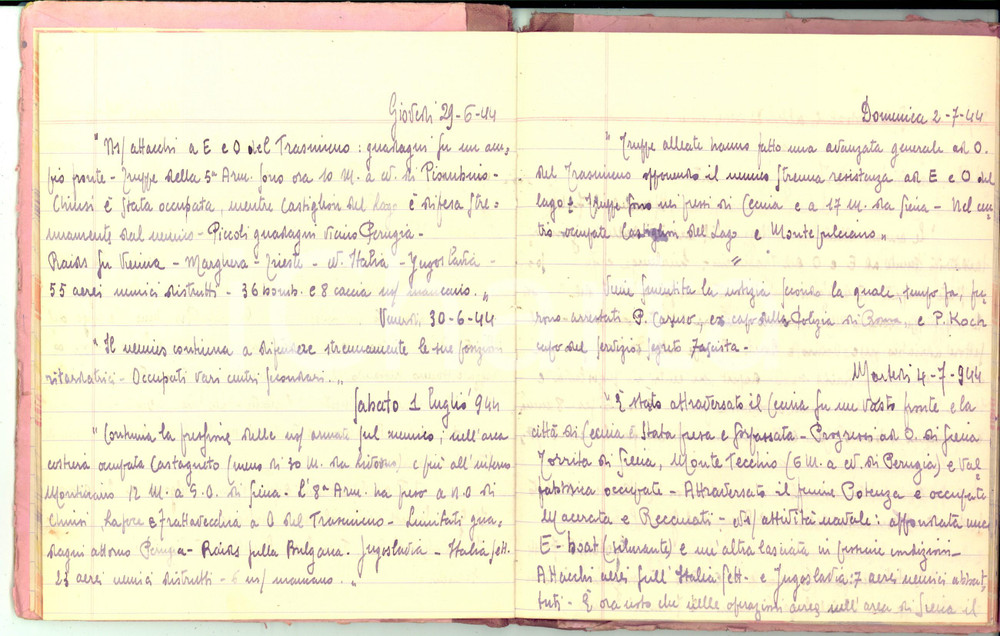 Giovedì 29-6-44
" Ns/ attacchi a E e O del Trasimeno : guadagni su un am=
pio fronte - Truppe della 5ª Arm. sono ora 10 M. a N. di Piombino -
Chiusi è stata occupata, mentre Castiglion del Lago è difesa stre=
nuamente dal nemico - Piccoli guadagni vicino Perugia -
Raids su Vienna - Marghera - Trieste - N. Italia - Jugoslavia -
55 aerei nemici distrutti - 36 bomb. e 8 caccia ns/ mancano. „
Venerdì 30-6-44
" Il nemico continua a difendere strenuamente le sue posizioni
ritardatrici - Occupati vari centri secondari. „
Sabato 1 luglio 944
" Continua la pressione delle ns/ armate sul nemico ; nell'area
costiera occupata Castagneto (meno di 30 M. da Livorno) e più all'interno
Monticiano 12 M. a S.O. di Siena. L'8ª Arm. ha preso a N.O di
Chiusi, e a O del Trasimeno - Limitati gua=
dagni attorno Perugia - Raids sulla Bulgaria. Jugoslavia - Italia sett.
23 aerei nemici distrutti - 6 ns/ mancano. „
Domenica 2-7-44
" Truppe alleate hanno fatto una avanzata generale ad O.
del Trasimeno opponendo il nemico strenua resistenza ad E e O del
lago. Truppe sono nei pressi di Cecina e a 17 M. da Siena - Nel cen=
tro occupate Castiglion del Lago e Montepulciano „
„
Viene smentita la notizia secondo la quale, tempo fa, fu=
rono arrestati P. Caruso, ex capo della Polizia di Roma, e P. Koch
capo del servizio segreto fascista -
Martedì 4-7-944
" È stato attraversato il Cecina su un vasto fronte e la
città di Cecina è stata presa e sorpassata - Progressi ad O. di Siena
Torrita di Siena, Monte Tecchio (6 M. a N. di Perugia) e Val=
fabbrica occupate - Attraversato il fiume Potenza e occupate
Macerata e Recanati - Ns/ attività navale : affondata una
E-boat (silurante) e un'altra lasciata in condizioni -
Attacchi aerei sull'Italia sett. e Jugoslavia : 7 aerei nemici abbat=
tuti - È ora noto che nelle operazioni aeree nell'area di Siena il